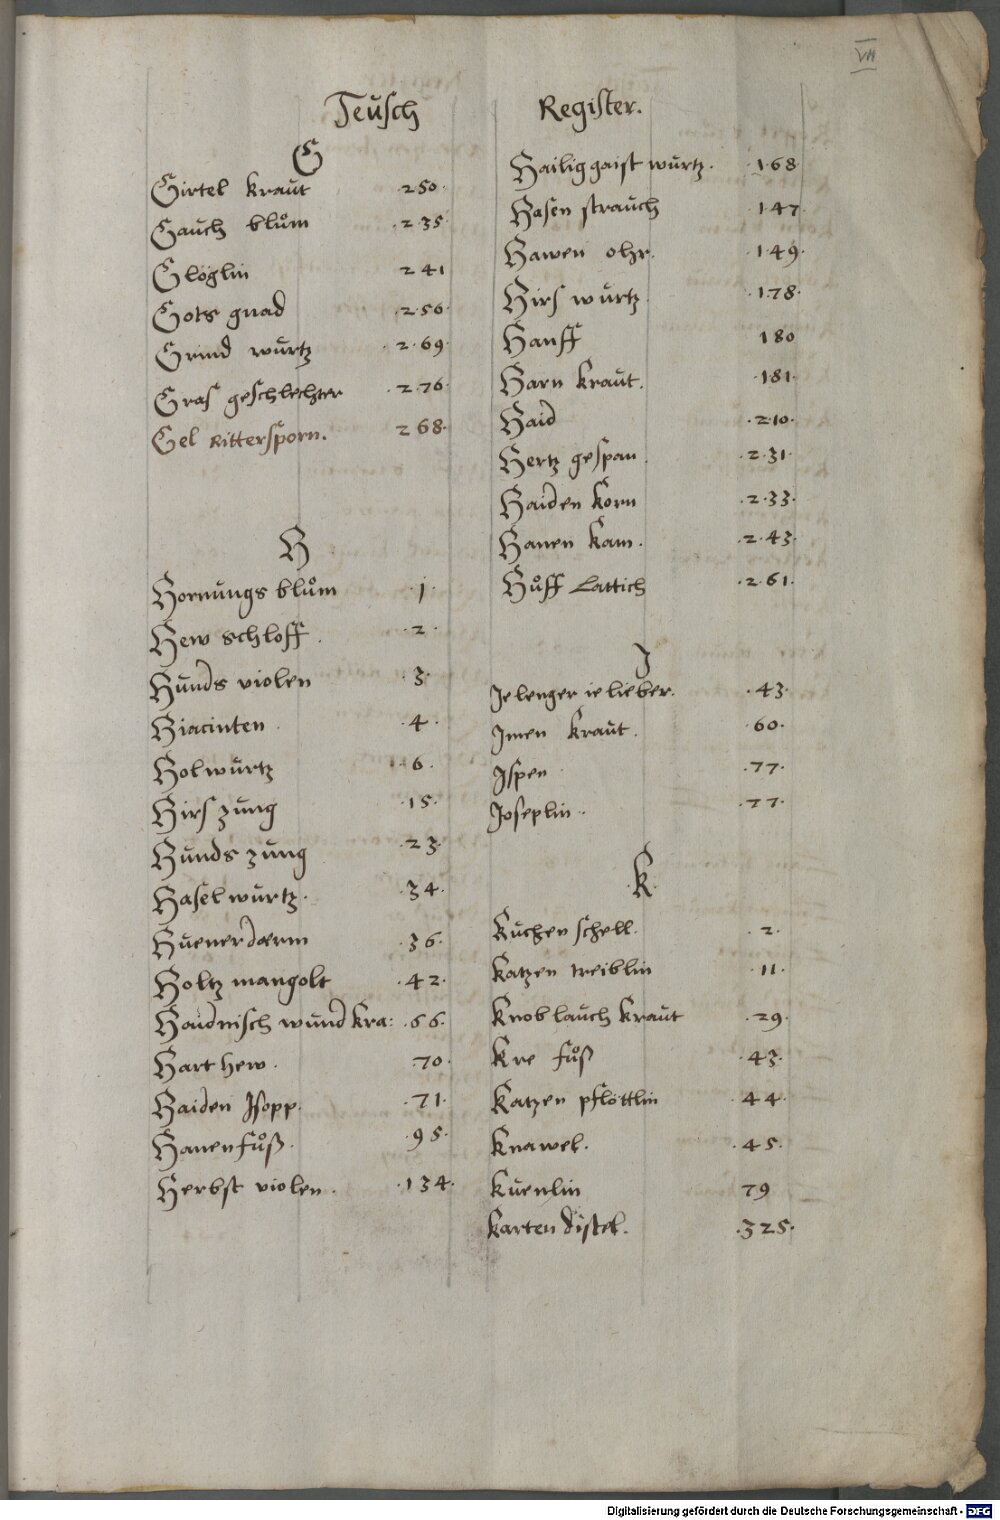 VII
Teusch Register.
G
Girtel kraut 250.
Gauch blům .235
Glöglin 241
Gots gnad .256.
Grind wurtz .269.
Gras geschlechter .276.
Gel Rittersporn. 268.
H
Hornungs blům .1.
Hew schloff. .2.
Hunds violen .3.
Hiacinten .4.
Holwurtz 6.
Hirs zung .15.
Hunds zung .23.
Hasel wurtz. .34.
Huener daerm .36.
Holtz mangolt .42.
Haidnisch wund kra: .66.
Hart hew. .70.
Haiden Isopp. .71.
Hanen fůß. .95.
Herbst violen. .134.
Hailig gaist wurtz. .168
Hasen strauch .147
Hawen ohr. .149.
Hirs wurtz. .178.
Hanff 180
Harn kraut. .181.
Haid .210.
Hertz gespan. .231.
Haiden korn .233.
Hanen kam. .243.
Hůff Lattich .261.
J
Je lenger ie lieber. .43.
Imen kraut. .60.
Ispen .77.
Joseplin. .77.
K.
Kuchen schell. .2.
Katzen treiblin .11.
Knoblauch kraut .29.
Kre fůß .43.
Katzen pflöttlin .44.
Knawel. .45.
Kuenlin 79
Karten distel. .325.
Digitalisierung gefördert durch die Deutsche Forschungsgemeinschaft - DFG